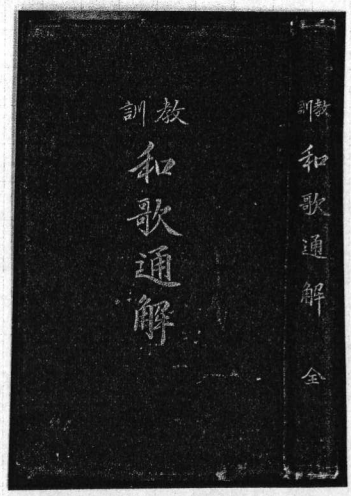 教訓
和歌通解
教訓
和歌通解 全